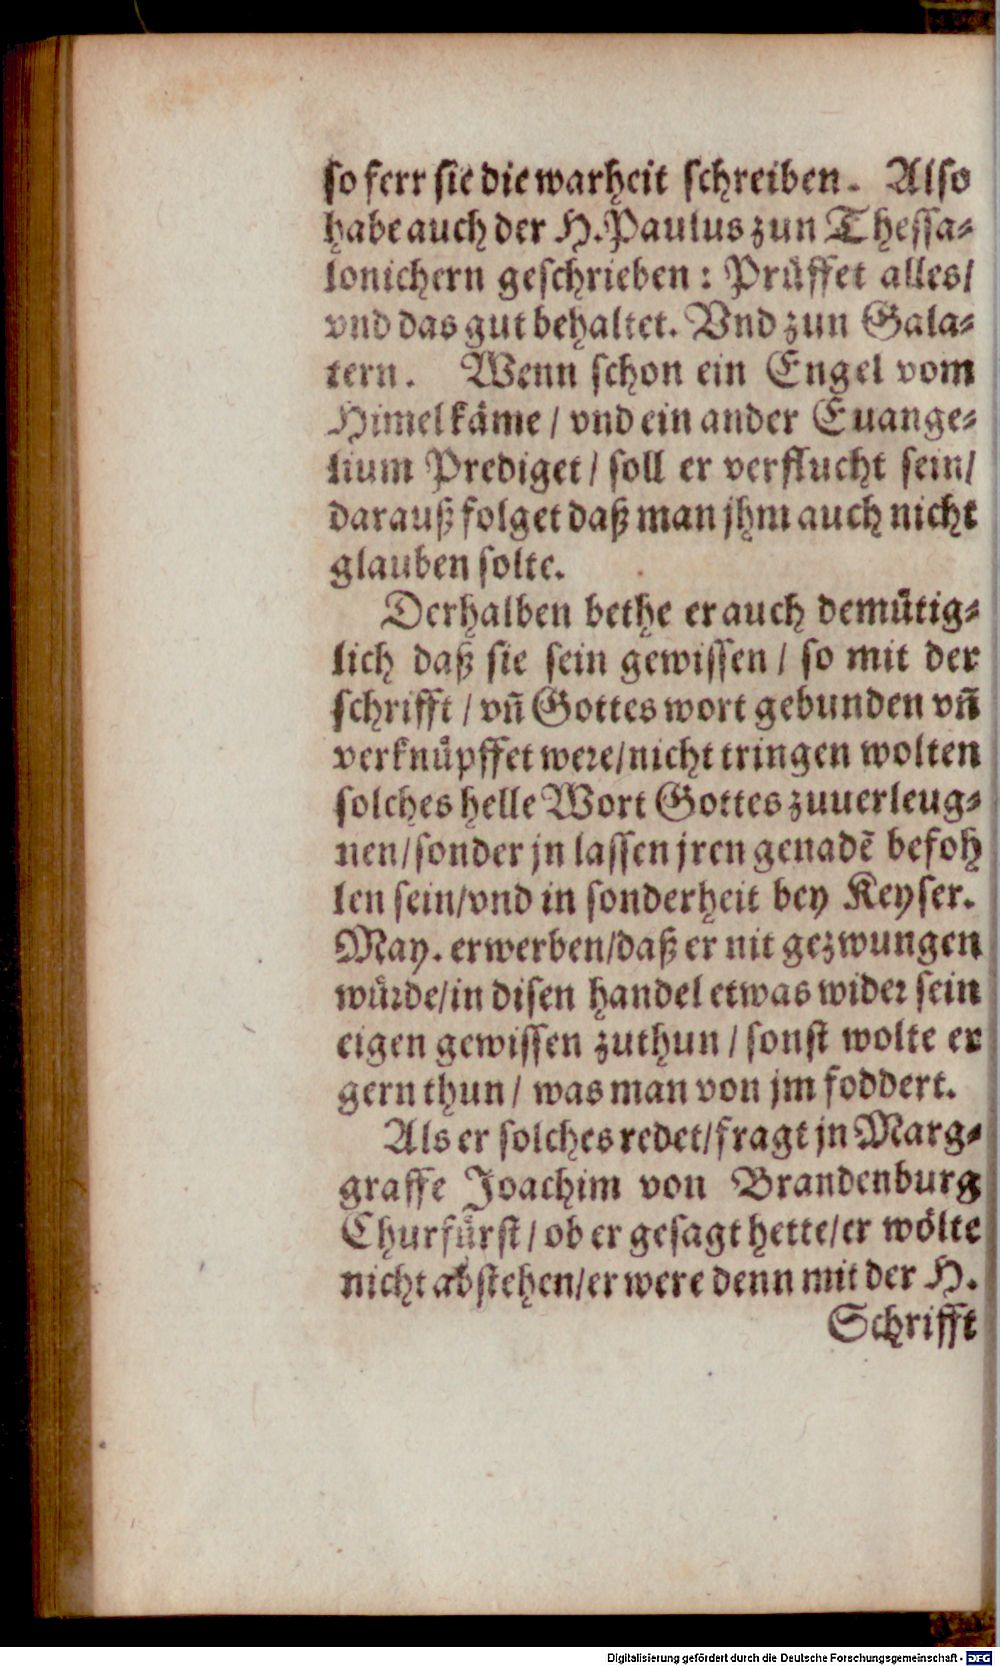 so ferr sie die warheit schreiben. Also
habe auch der H. Paulus zun Thessa-
lonichern geschrieben: Prüffet alles/
vnd das gut behaltet. Vnd zun Gala-
tern. Wenn schon ein Engel vom
Himel käme / vnd ein ander Euange-
lium Prediget / soll er verflucht sein/
darauß folget daß man jhm auch nicht
glauben solte.
Derhalben bethe er auch demütig-
lich daß sie sein gewissen / so mit der
schrifft / vñ Gottes wort gebunden vñ
verknüpffet were/nicht tringen wolten
solches helle Wort Gottes zuuerleug-
nen/sonder jn lassen jren genadẽ befoh
len sein/vnd in sonderheit bey Keyser.
May. erwerben/daß er nit gezwungen
würde/in disen handel etwas wider sein
eigen gewissen zuthun / sonst wolte er
gern thun / was man von jm foddert.
Als er solches redet/fragt jn Marg-
graffe Joachim von Brandenburg
Churfürst / ob er gesagt hette/er wölte
nicht abstehen/er were denn mit der H.
Schrifft
Digitalisierung gefördert durch die Deutsche Forschungsgemeinschaft - DFG